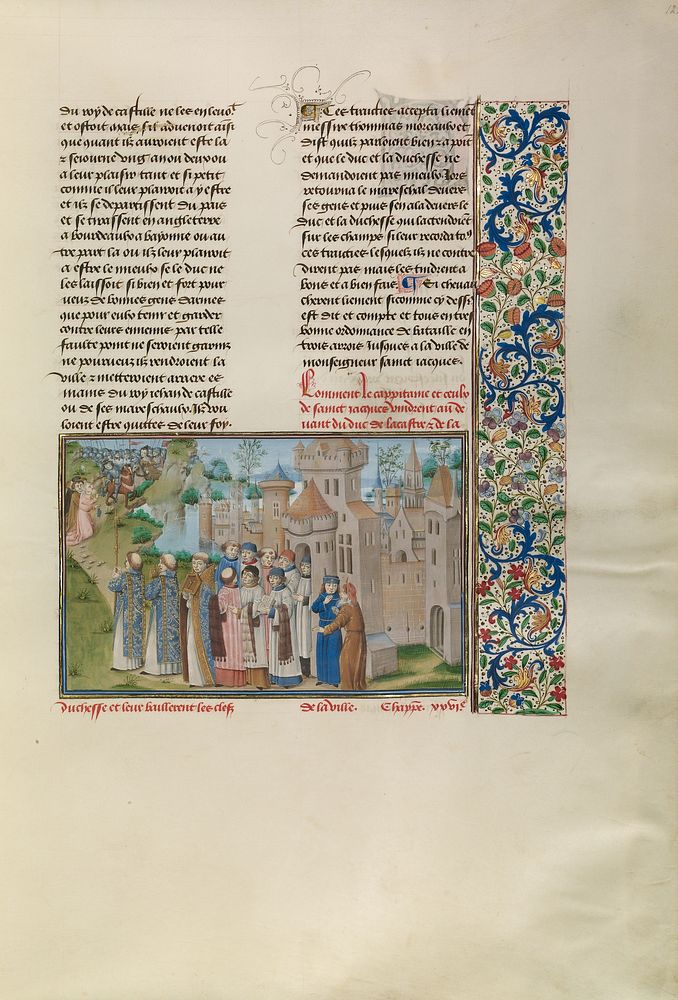 du roy de castille ne les en levoit
et ostoit mais s'il advenoit ainsi
que quant ilz auroient este la
z seiourne ung an ou deux ou
a leur plaisir tant et si petit
comme il leur plairoit a y estre
et ilz se departissent du pais
et se traissent en angleterre
a bourdeaulx a bayonne ou au
tre part la ou ilz leur plairoit
a estre le mieulx se le duc ne
les laissoit si bien et fort pour
veuz de bonnes gens darmes
que pour eulx tenir et garder
contre leurs ennemis par telle
faulte point ne seroient garniz
ne pourveuz ilz rendroient la
ville z mettroient arriere es
mains du roy iehan de castille
ou de ses mareschaulx Ilz vou
loient estre quittes de leur foy.
A Ces traitties accepta liement
messire thommas moreaulx et
dist quilz parloient bien z a point
et que le duc et la duchesse ne
demandoient pas mieulx lors
retourna le mareschal devers
ses gens et puis sen ala devers le
duc et la duchesse qui lattendoient
sur les champs si leur recorda to9
ces traitties lesquelz ilz ne contre
dirent pas mais les tindrent a
bons et a bien fais. Et chevau
cherent liement si comme cy dess9
est dit et compte et tous en tres
bonne ordonnance de bataille en
trois arrois Jusques a la ville de
monseigneur sainct iacques.
Comment le cappitaine et ceulx
de sainct iacques vindrent au de
vant du duc de lacastre z de la
duchesse et leur baillerent les clefz de la ville. Chappe. xxvie